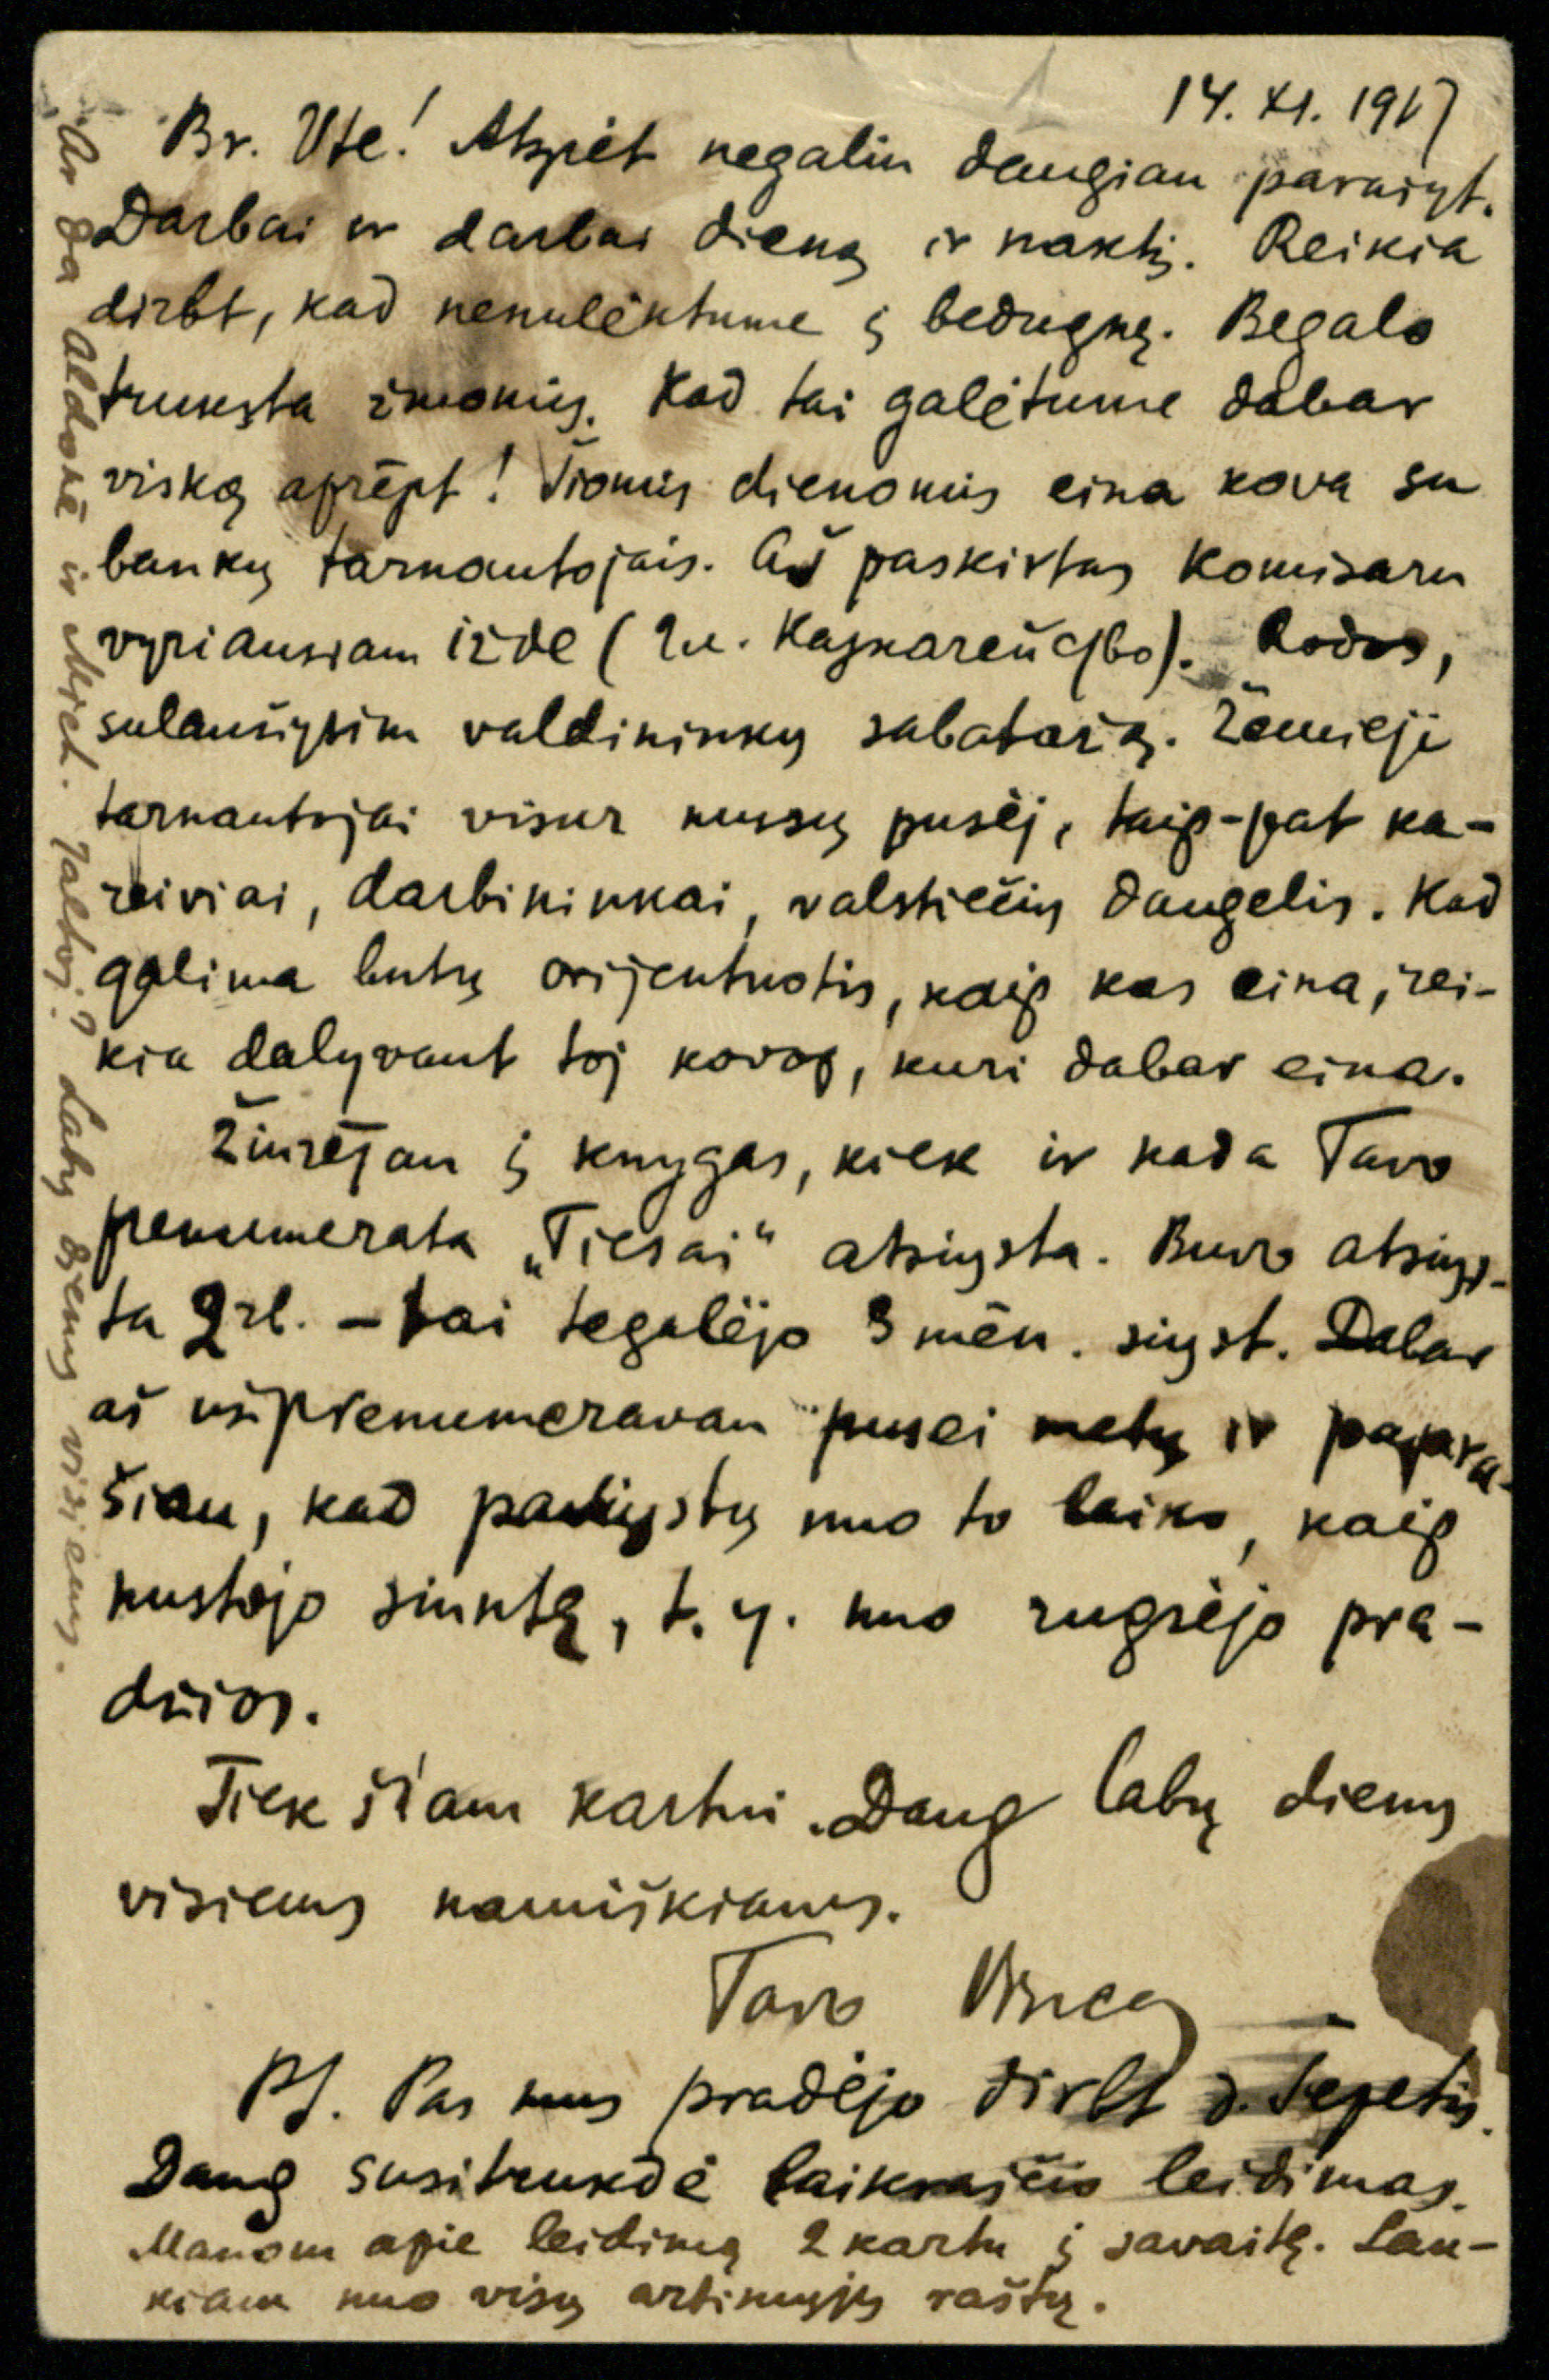 14. XI. 1917
Br. Ute! Atspiet negaliu daugiau parašyt.
Darbai ir darbai dieną ir naktį. Reikia
dirbt, kad nenulėktume į bedugnę. Begalo
truksta žmonių. Kad tai galėtume dabar
viską aprėpt! Šiomis dienomis eina kova su
bankų tarnautojais. Aš paskirtas Komisaru
vyriausiam ižde (Гл. Казначейство). Rodos,
sulaušysim valdininkų sabotažą. Žemieji
tarnautojai visur musų pusėj, taip-pat ka-
reiviai, darbininkai, valstiečių daugelis. Kad
galima butų orijentuotis, kaip kas eina, rei-
kia dalyvaut toj kovoj, kuri dabar eina.
Žiurėjau į knygas, kiek ir kada Tavo
prenumerata „Tiesai" atsiųsta. Buvo atsiųs-
ta 2 rb. – tai tegalėjo 3 mėn. siųst. Dabar
aš užprenumeravau pusei metų ir papra-
šiau, kad pasiųstų nuo to laiko, kaip
nustojo siuntę, t. y. nuo rugsėjo pra-
džios.
Tiek šiam kartui. Daug labų dienų
visiems namiškiams.
Tavo Vincas
PS. Pas mus pradėjo dirbt d. Šepetis.
Daug susitrukdė laikraščio leidimas.
Manom apie leidimą 2 kartu į savaitę. Lau-
kiam nuo visų artimųjų raštų.
Ar da Aldonė ir Miet. Jaltoj? Labų dienų visiems.